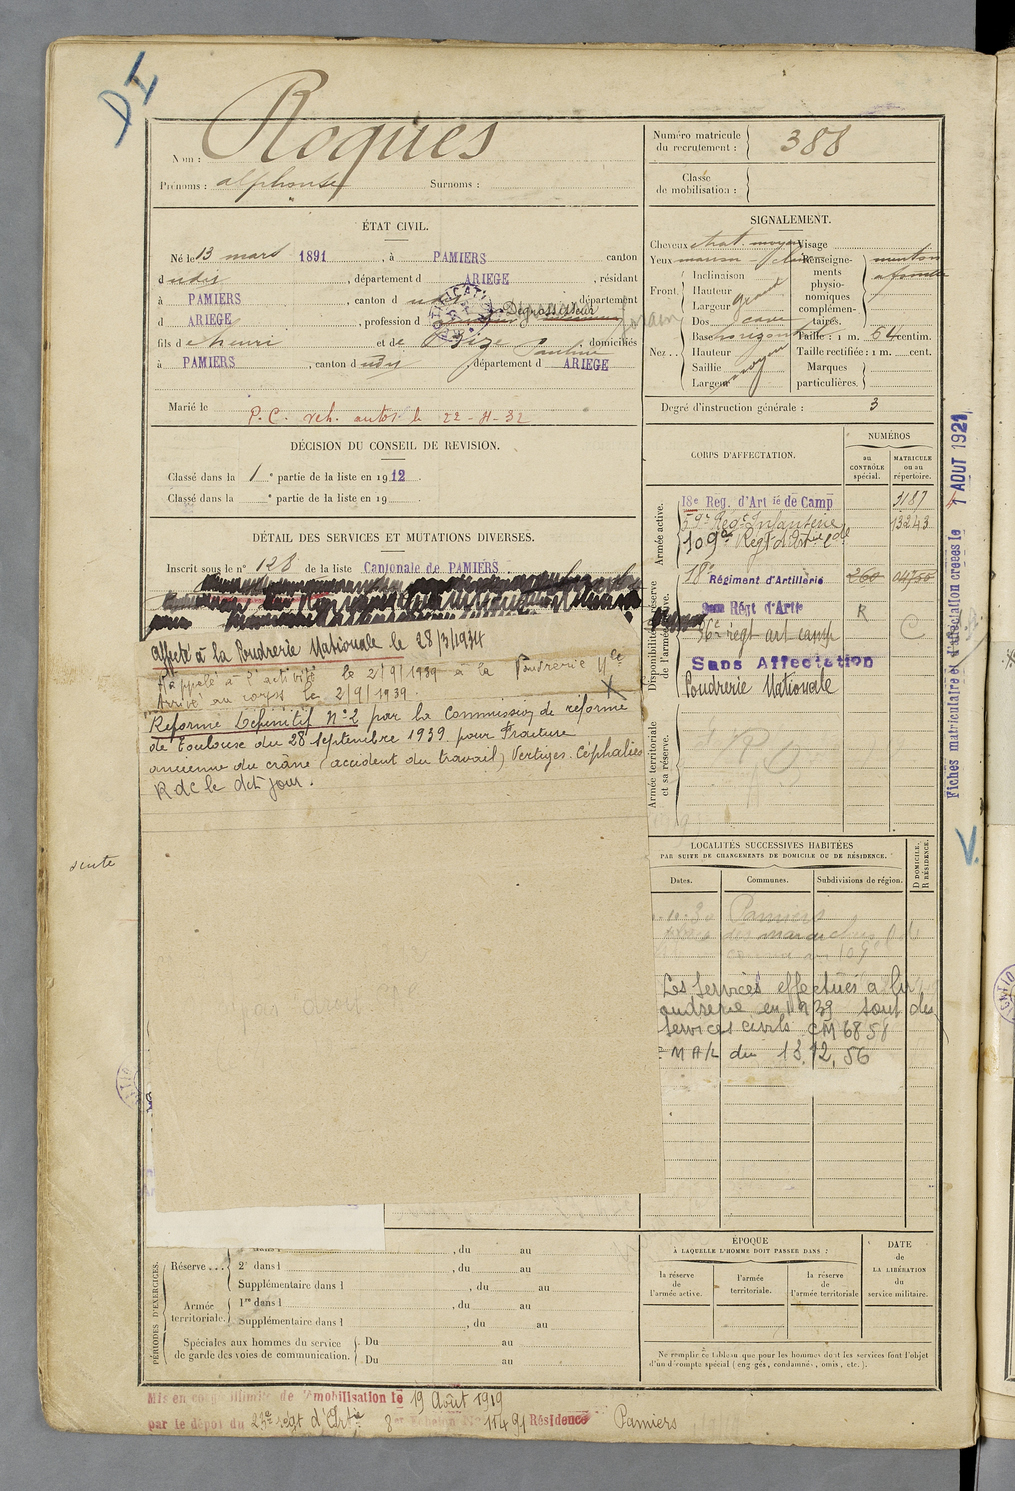 DI
Nom : Roques
Prénoms : alphonse Surnoms :
Numéro matricule du recrutement : 388
Classe de mobilisation :
ÉTAT CIVIL.
Né le 13 mars 1891, à PAMIERS canton
d udit, département d ARIEGE, résidant
à PAMIERS, canton d udit, département
d ARIEGE, profession d Dégrossisseur
fils de henri et de Pauline, domiciliés
à PAMIERS, canton d udit, département d ARIEGE
Marié le
P.C. veh. autos le 22-11-32
DÉCISION DU CONSEIL DE REVISION.
Classé dans la 1e partie de la liste en 1912
Classé dans la e partie de la liste en 19
DÉTAIL DES SERVICES ET MUTATIONS DIVERSES.
Inscrit sous le n° 128 de la liste Cantonale de PAMIERS.
Affecté à la Poudrerie Nationale le 28/3/1934
Rappelé à l'activité le 2/9/1939 à la Poudrerie Nle
Arrivé au corps le 2/9/1939.
Réformé Définitif N° 2 par la Commission de réforme
de Toulouse du 28 Septembre 1939 pour Fracture
ancienne du crâne (accident du travail) Vertiges. Céphalées
R d c le dit jour.
SIGNALEMENT.
Cheveux chat. moyen Visage
Yeux marron
Renseignements physionomiques complémentaires.
menton
à fossette
Front.
Inclinaison
Hauteur
Largeur grand
Nez..
Dos cave
Base horizontal
Hauteur
Saillie moyen
Largeur
Taille : 1 m. 64 centim.
Taille rectifiée : 1 m. cent.
Marques particulières.
Degré d'instruction générale : 3
CORPS D'AFFECTATION.
NUMÉROS
au CONTRÔLE spécial.
MATRICULE ou au répertoire.
Armée active.
18e Rég. d'Artie de Camp 3187
59e Regt Infanterie 13243
109e Regt d'Artie
Disponibilité et réserve de l'armée active.
18e Régiment d'Artillerie 260
Régt d'Artie R
36e regt art camp C
Sans Affectation
Poudrerie Nationale
Armée territoriale et sa réserve.
Fiches matriculaire et d'affectation créées le 1 AOUT 1921
LOCALITÉS SUCCESSIVES HABITÉES
PAR SUITE DE CHANGEMENTS DE DOMICILE OU DE RÉSIDENCE.
D DOMICILE. R RÉSIDENCE.
Dates. Communes. Subdivisions de région.
Pamiers
Les services effectués à la
Poudrerie en 1939 sont des
services civils CM 6858
MA/R du 13.12.56
V.
PÉRIODES D'EXERCICES.
, du au
Réserve... 2e dans l , du au
Supplémentaire dans l , du au
Armée territoriale. 1re dans l , du au
Supplémentaire dans l , du au
Spéciales aux hommes du service de garde des voies de communication.
Du au
Du au
ÉPOQUE
À LAQUELLE L'HOMME DOIT PASSER DANS :
la réserve de l'armée active.
l'armée territoriale.
la réserve de l'armée territoriale
DATE de LA LIBÉRATION du service militaire.
Ne remplir ce tableau que pour les hommes dont les services font l'objet
d'un décompte spécial (engagés, condamnés, omis, etc.).
Mis en congé illimité de démobilisation le 19 Août 1919
par le dépôt du regt d'Artie 8e Echelon No 11491 Résidence Pamiers